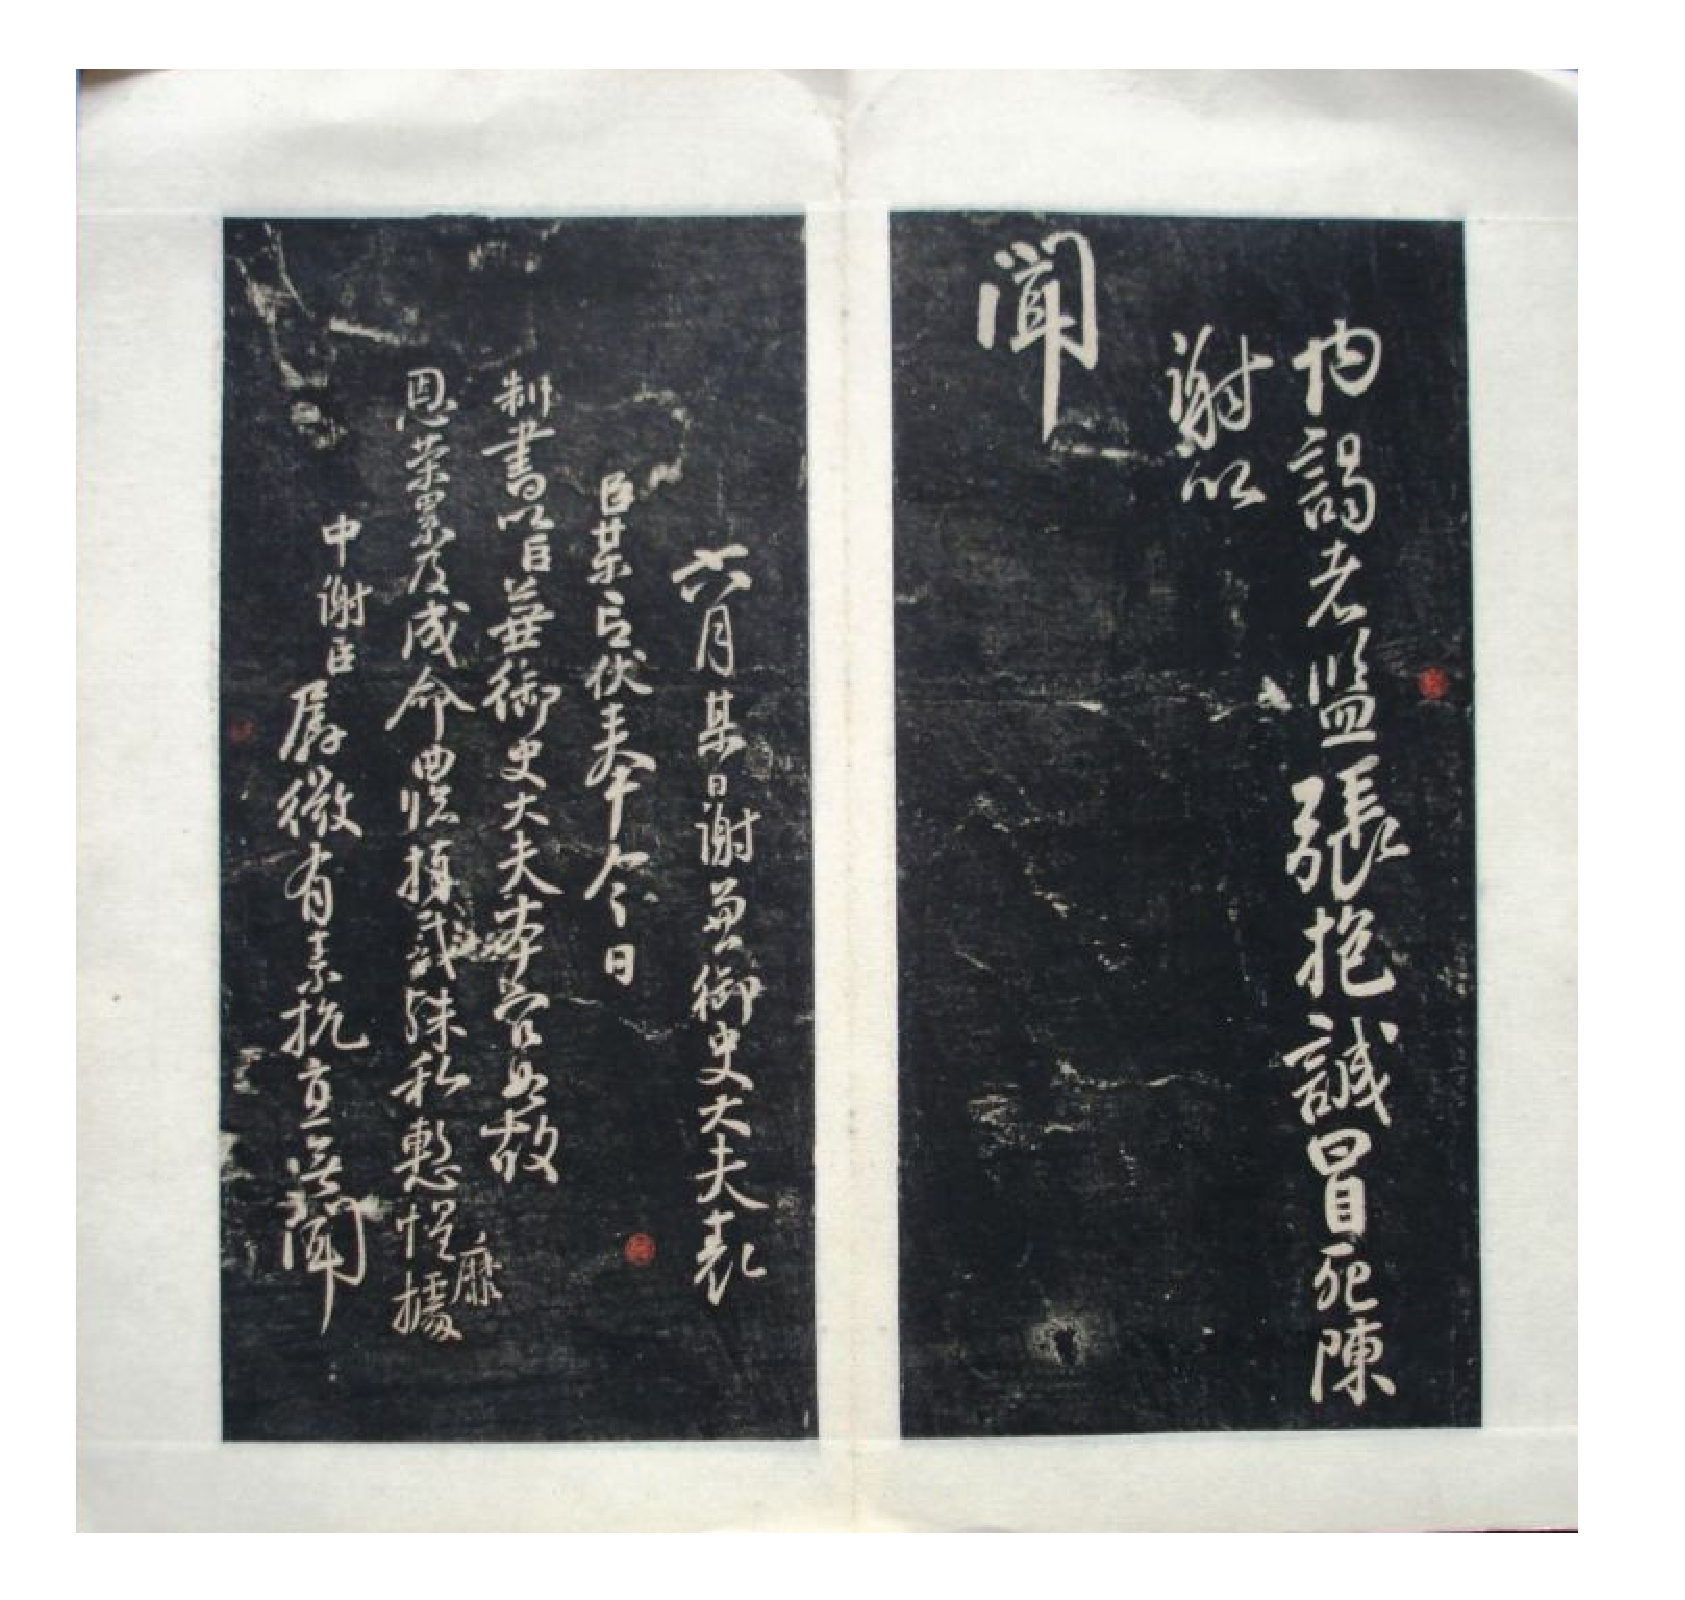 内謁者監張抱誠冒死陳
謝以
聞
六月某日謝兼御史大夫表
臣某言伏奉今日
制書以臣兼御史大夫本官如故
恩榮累及成命曲臨殊私慙惶靡據
中謝臣孱微有素抗直無聞